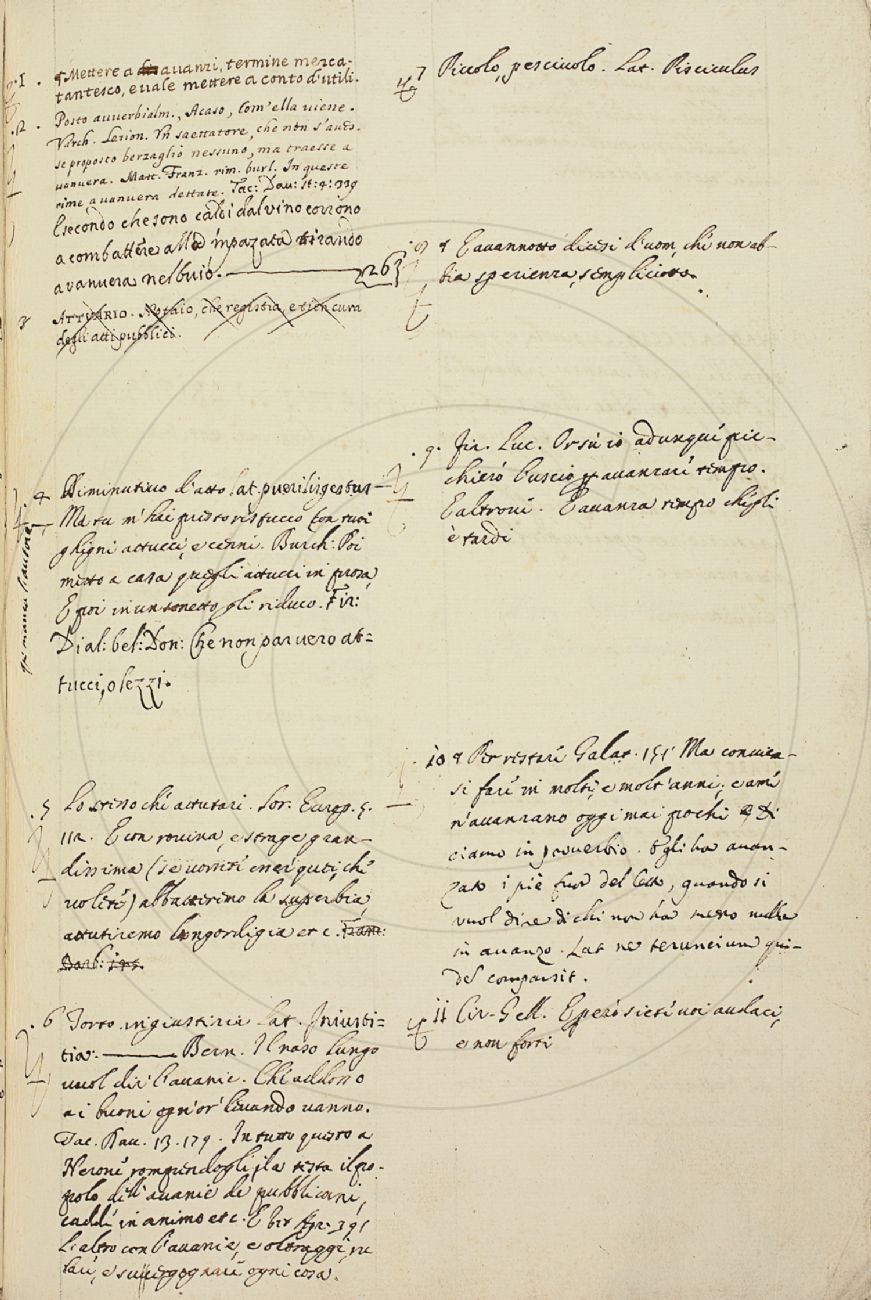 .1. Mettere a avanzi, termine merca-
tantesco, e vale mettere a conto d'utili.
.2. Posto avverbialm., Acaso, Com'ella viene.
Varch. Lezion. Un saettatore, che non s'aves-
se proposto berzaglio nessuno, ma traesse a
vanvera. Matt. Franz. rim. burl. In queste
rime a vanvera dettate. Tac: Dav: st: 4: 339
E secondo che sono caldi dal vino corrono
a combattere alla impazata tirando
avanvera nel buio. 263
3 ATTUARIO. Notaio, che registra, e tien cura
degli atti pubblici.
4 Diminutivo d'atto. lat. puerilis gestus
Ma tu m'hai presto ristucco con tuoi
ghigni attucci, e cenni. Burch: Poi
metto a casa quegli attucci in prosa
E poi in un sonetto gli riduco. Fir:
Dial: bel: Don: Che non paruero at=
tucci, o lezzi.
qui manca l'autore
.5 Lo stesso che attutare. Sor. Europ. 5.
112. E con rovina, e strage gran-
dissima (se uorrete eneiguti, che
uolete) abbatteremo la superbia,
attutiremo l'ingordigia etc. Fram:
Barb:
.6 Torto, ingiustizia Lat. Iniusti=
tia: Bern. Il naso lungo
vuol dir l'avanie. Chi addosso
a i buoni ogn'or' leuando vanno.
Tac. Dav. 13. 179. In tutto questo a
Nerone rompendogli la testa il po-
polo dell'avanie de pubblicani,
cadde in animo etc. E 391
L'altro con l'avanie, e oltraggi, ru
bare, e suergognare ogni cosa.
7 Piccolo, pesciuolo. Lat. Pisciculus
8 E avannotto dicesi d'uom, che non ab-
bia sperienza, sempliciotto.
.9. Fir. Luc. Orsù io adunque pic-
chierò l'uscio per avanzare tempo.
E altroue. E avanza tempo chegli
è tardi
.10 Per restare Galat. 151 Ma conviea-
si fare in molti, e molt'anni; e a me
n'avanzano oggimai pochi Di
ciamo in proverbio. Egli ha avan-
zato i piè fuor del letto, quando si
vuol dire di chi non ha messo nulla
in avanzo. Lat ne teruncium qui-
del comparsit.
11 Cir. Gell. E però siete voi audaci,
e non forti